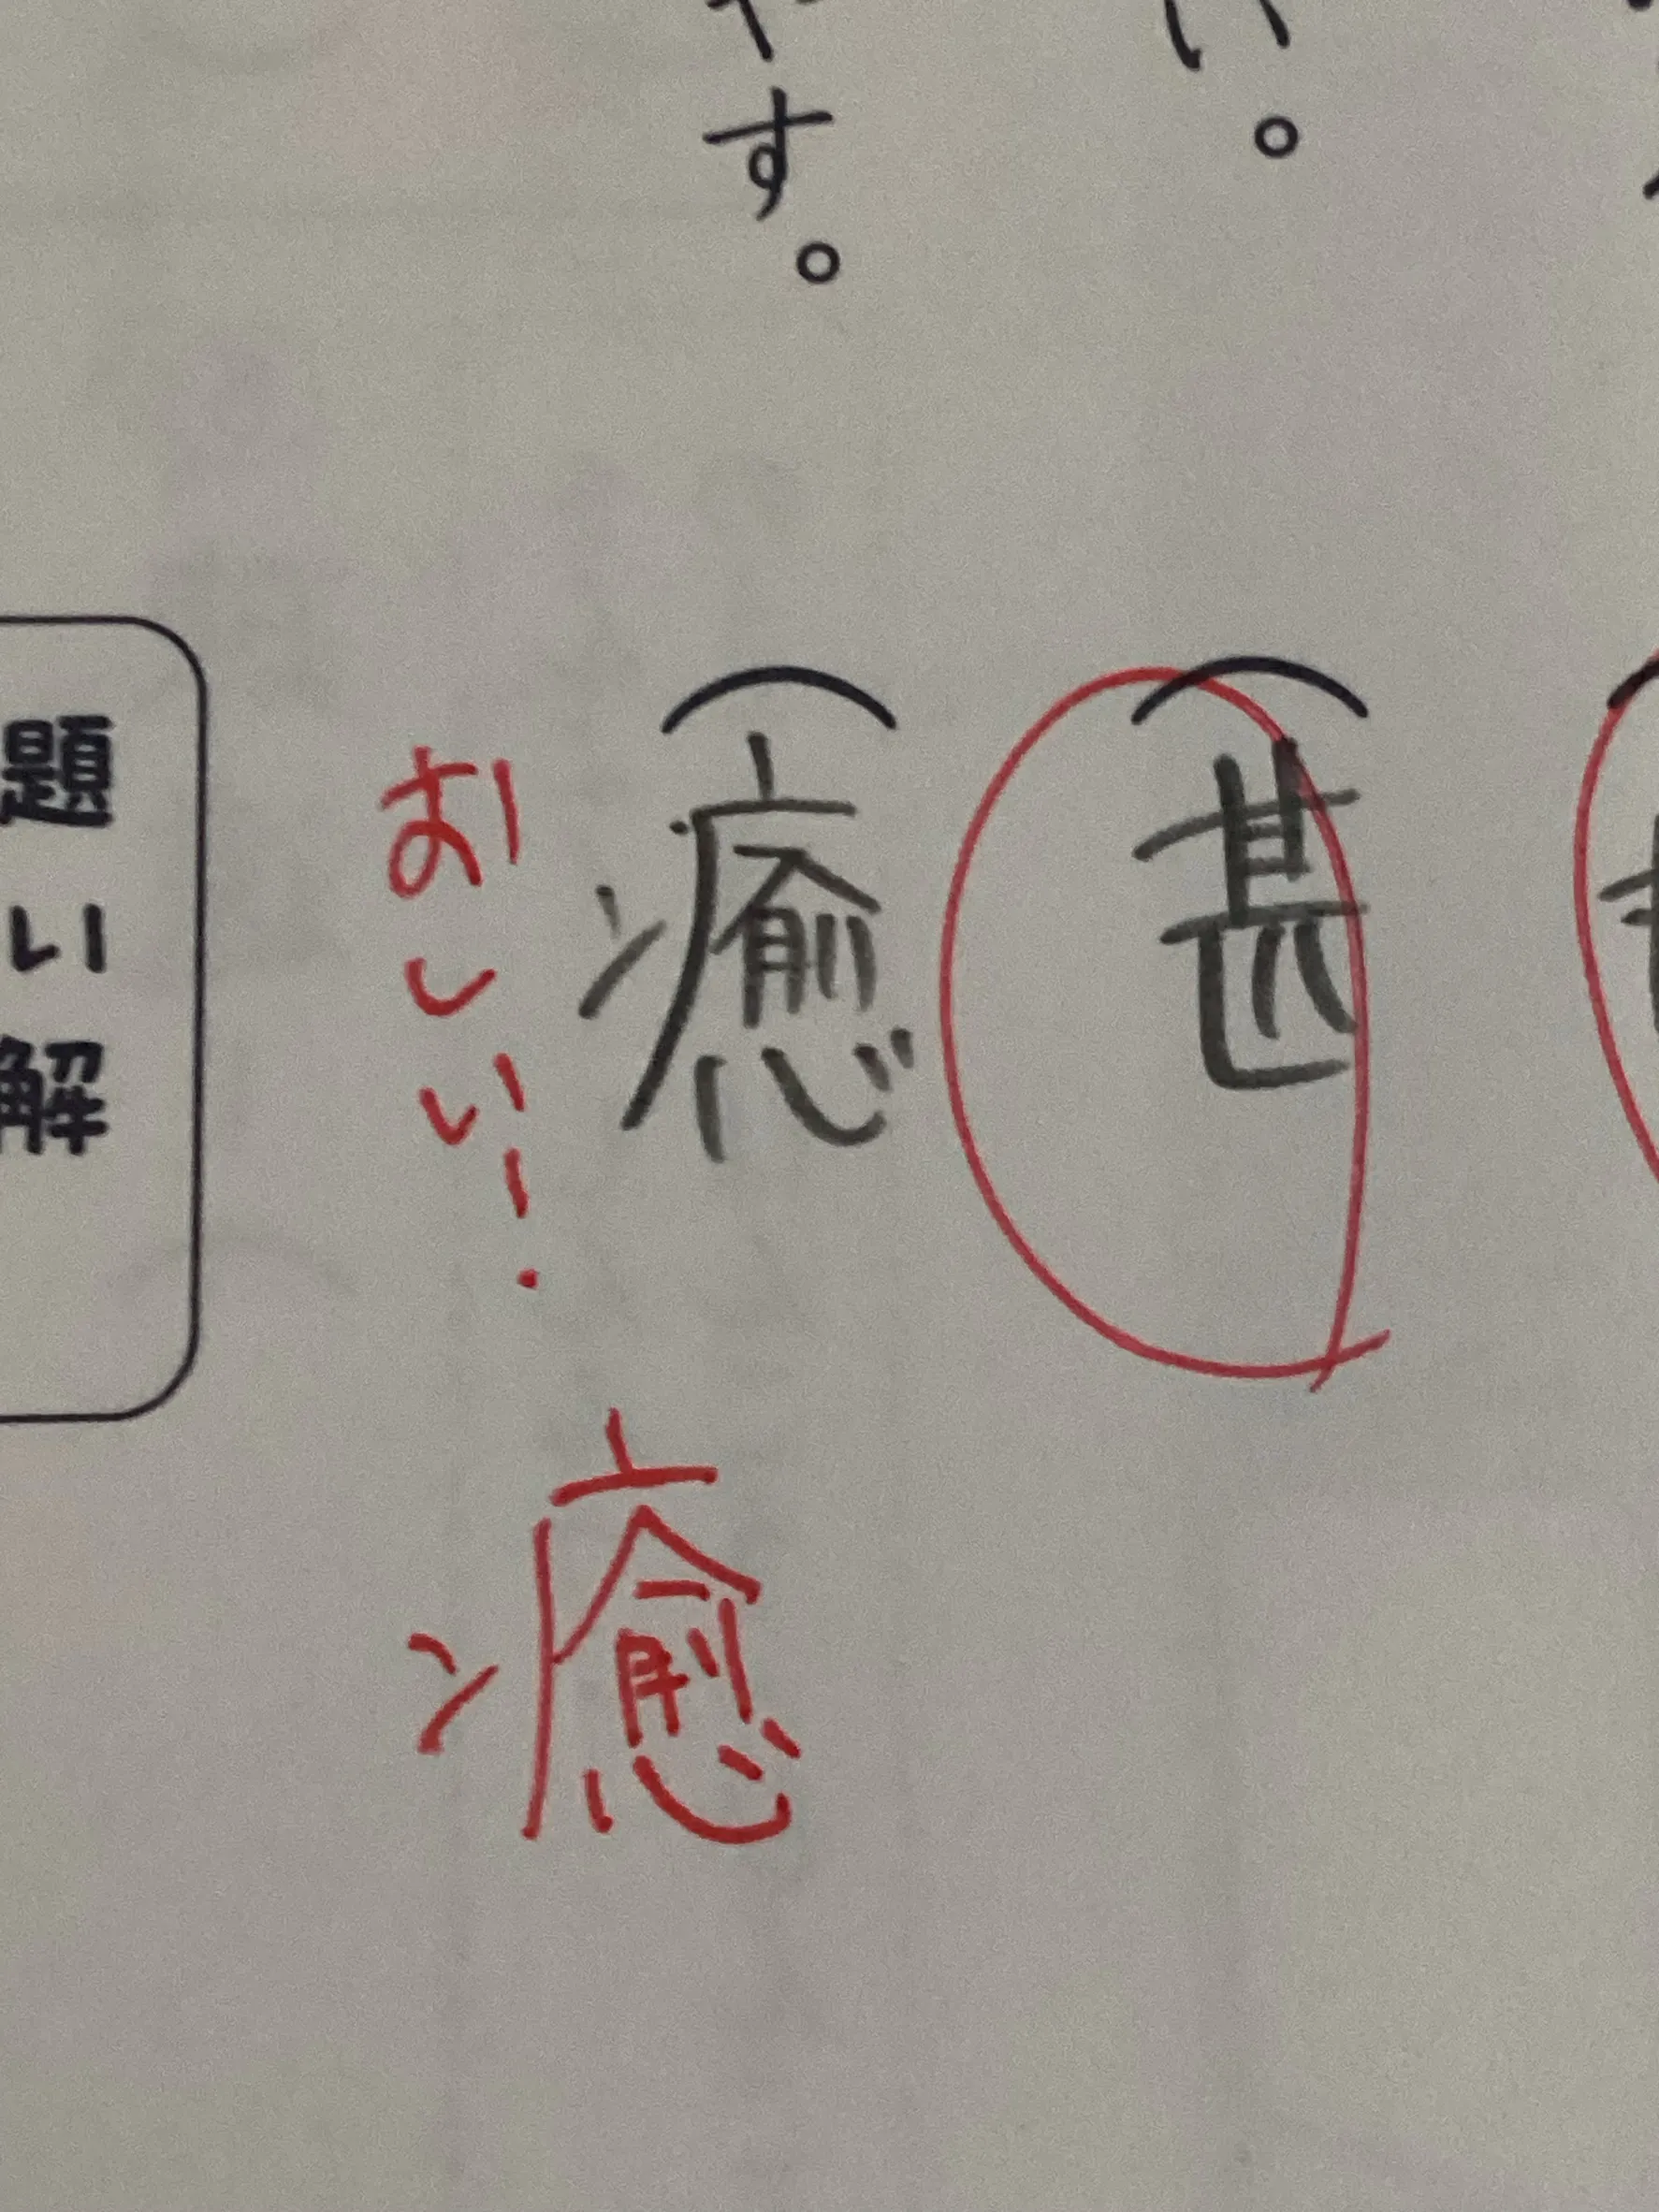 い。
やす。
（甚
（癒
おしい!
癒
題い解